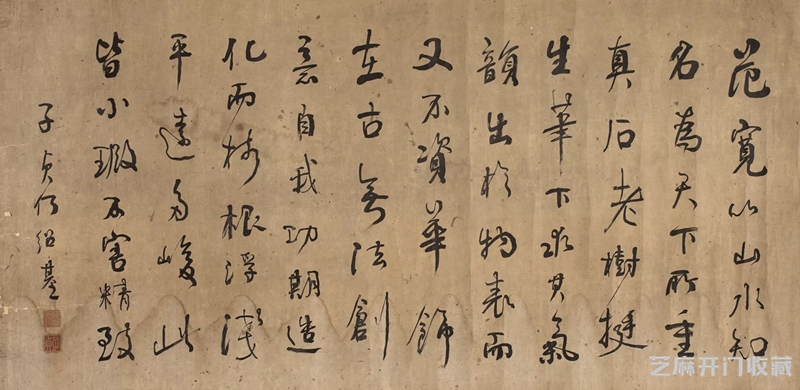 范寬以山水知
名為天下所重
真石老樹挺
生筆下求其氣
韻出於物表而
又不資華飾
在古無法創
意自我功期造
化而樹根浮淺
平遠多峻此
皆小瑕不害精致
子貞何紹基
芝麻开门收藏